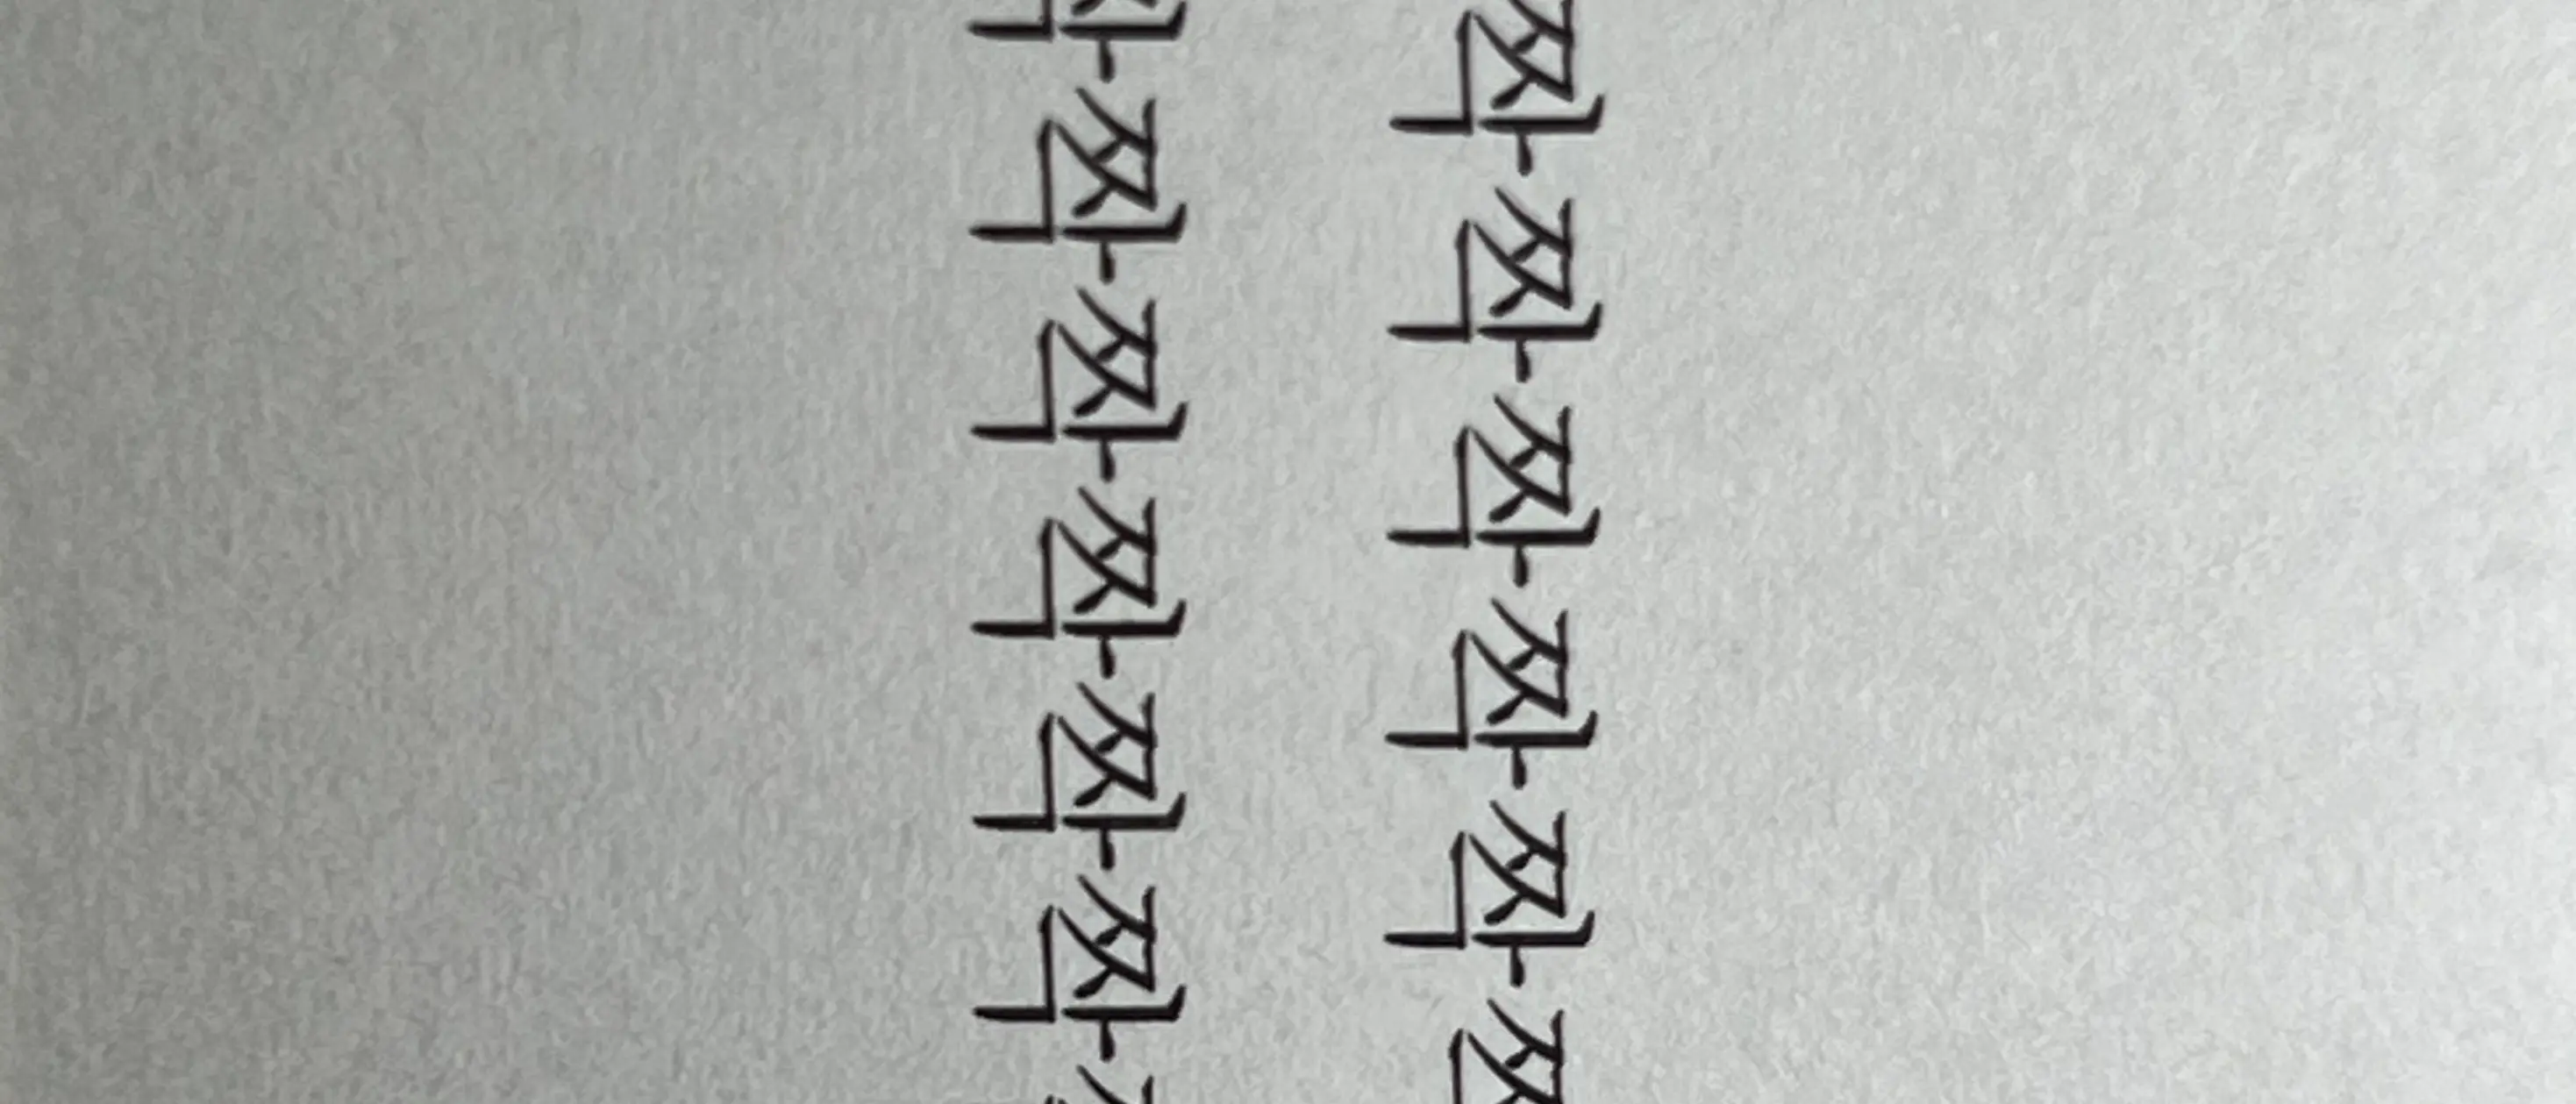 짝짝짝짝짝
짝짝짝짝짝